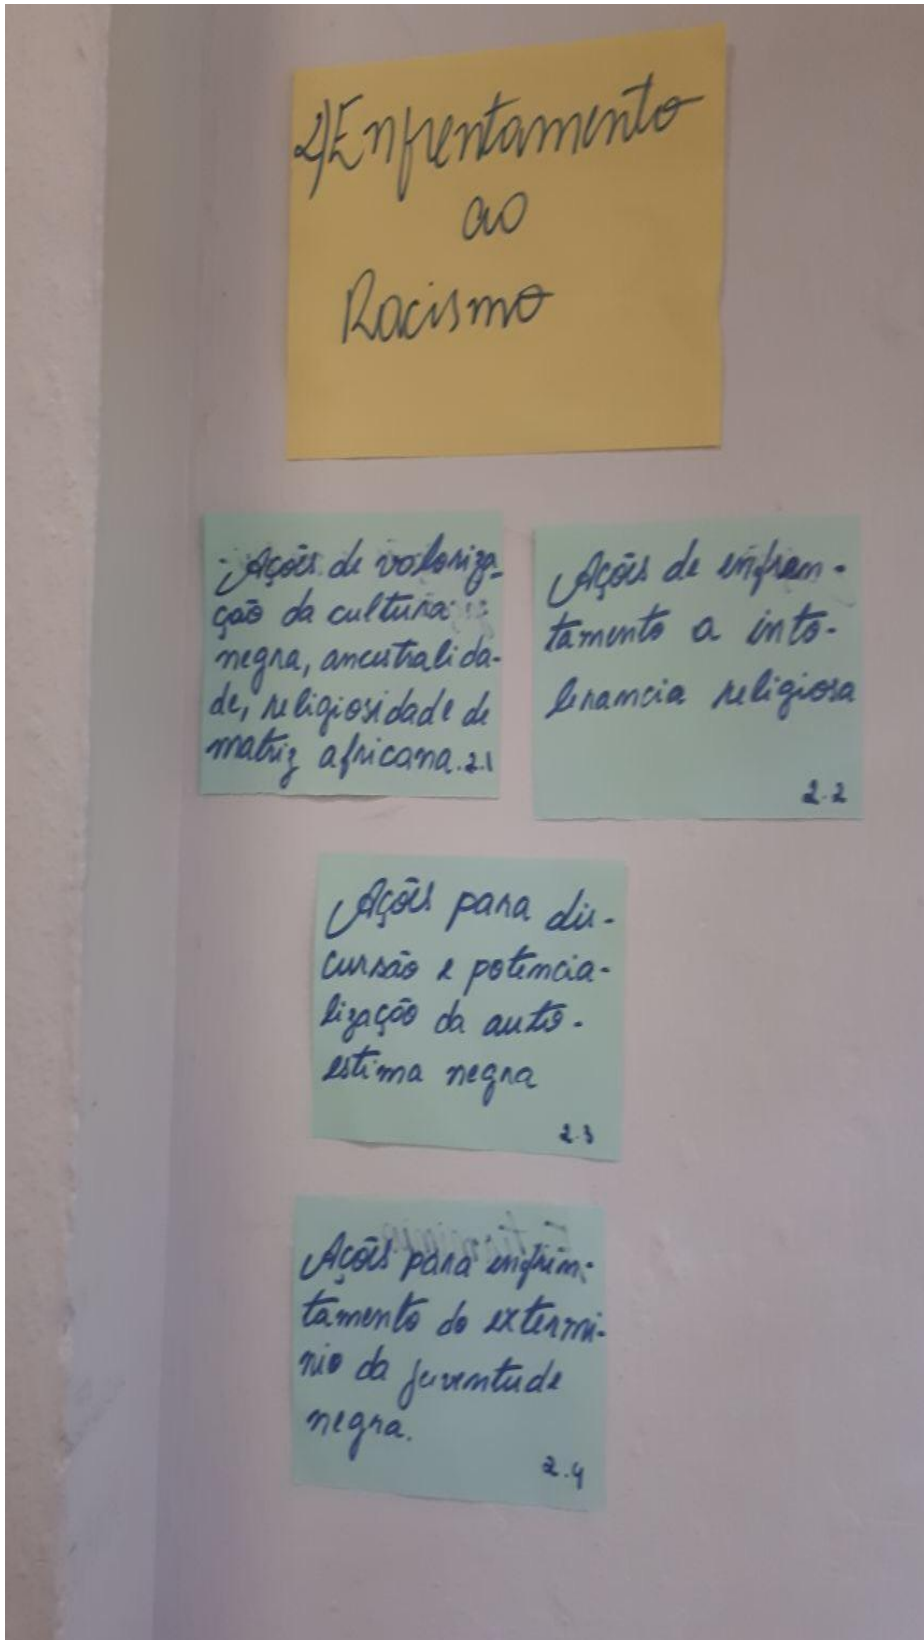 2) Enfrentamento
ao
Racismo
Ações de valoriza-
ção da cultura
negra, ancestralida-
de, religiosidade de
matriz africana. 2.1
Ações de enfren-
tamento a into-
lerancia religiosa
2.2
Ações para dis-
cursão e potencia-
lização da auto-
estima negra
2.3
Ações para enfren-
tamento do extermi-
nio da juventude
negra.
2.4